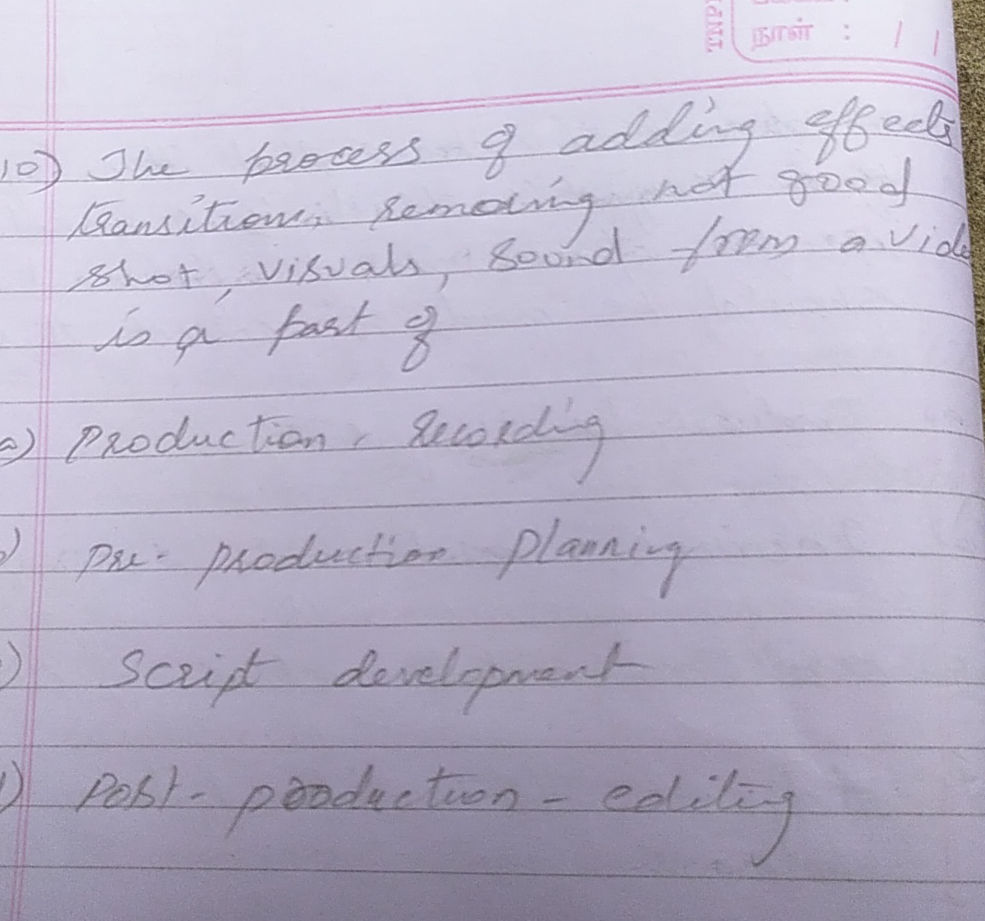 TNP
நாள் : / /
10) The process of adding effects
transitions, removing not good
shot, visuals, sound from a vide
is a part of
a) Production, Recording
) Pre-production planning
) Script development
) Post-production - editing